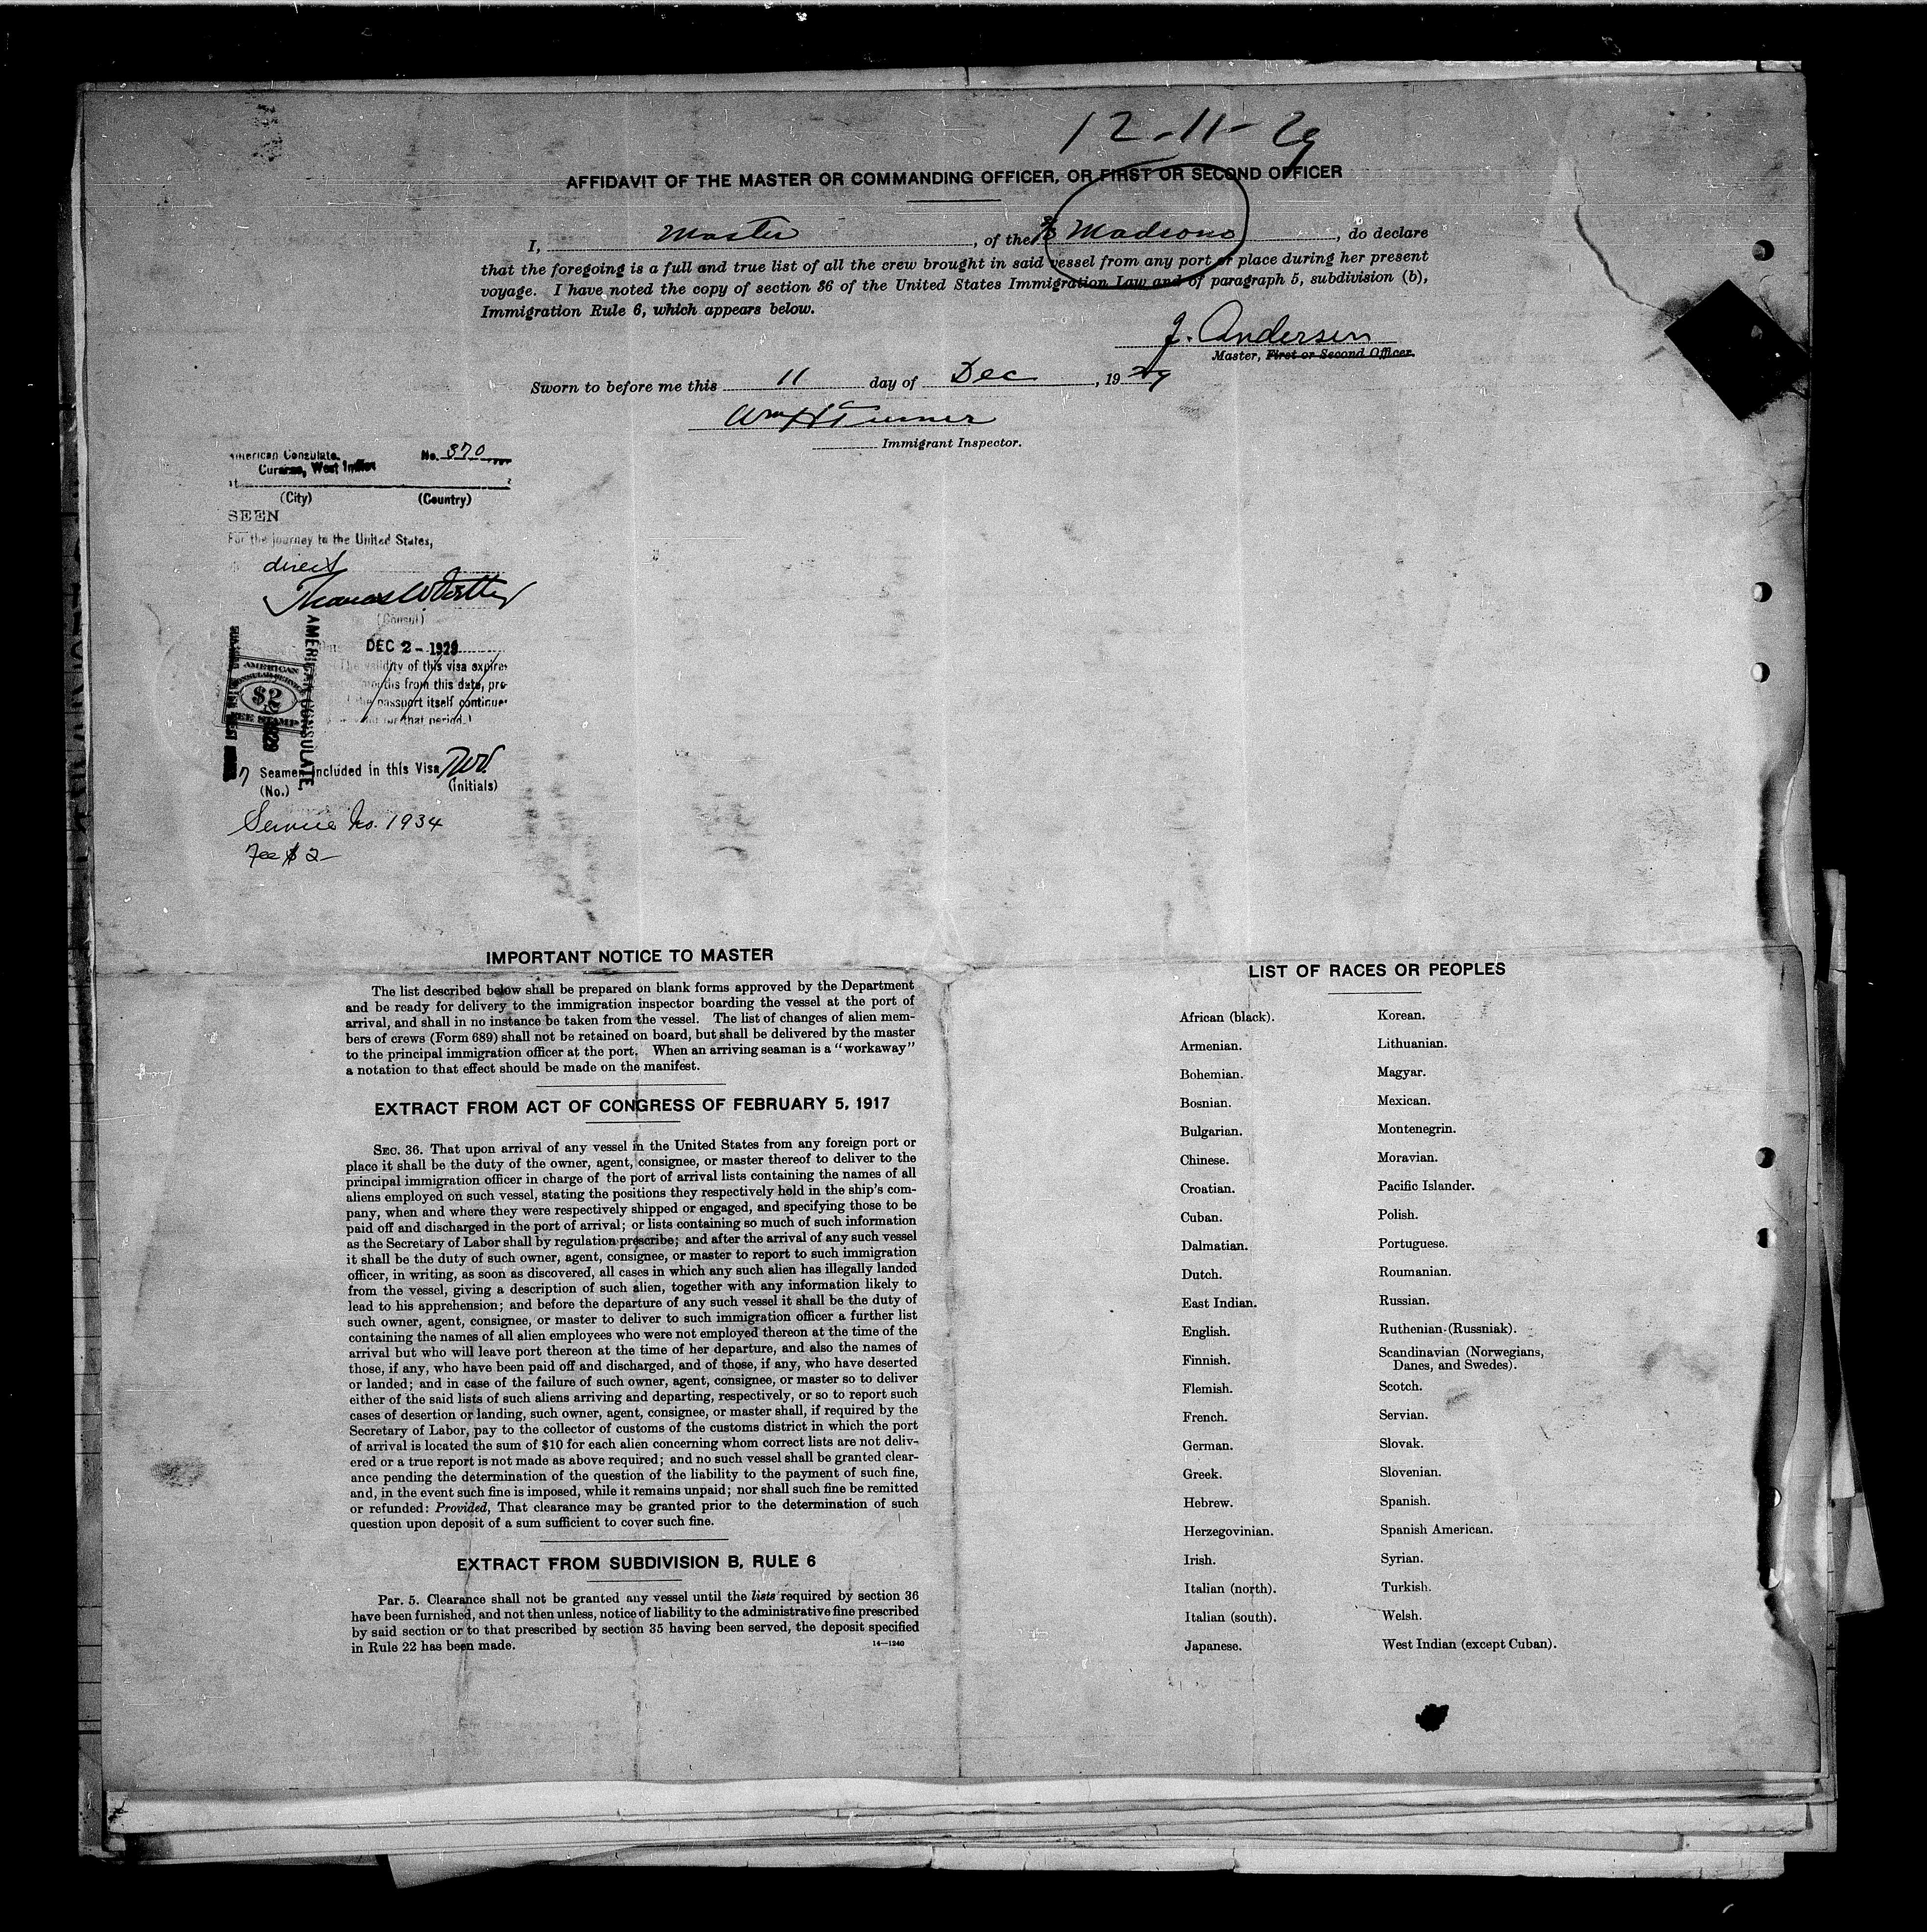 12-11-29
AFFIDAVIT OF THE MASTER OR COMMANDING OFFICER, OR FIRST OR SECOND OFFICER
I, Master, of the Madsono, do declare
that the foregoing is a full and true list of all the crew brought in said vessel from any port or place during her present
voyage. I have noted the copy of section 36 of the United States Immigration Law and of paragraph 5, subdivision (b),
Immigration Rule 6, which appears below.
J. Andersen
Master, First or Second Officer.
Sworn to before me this 11 day of Dec, 1929
Wm H Turner
Immigrant Inspector.
American Consulate, No. 370
Curacao, West Indies
(City) (Country)
SEEN
For the journey to the United States,
direct
Thomas
(Consul)
DEC 2 - 1929
The validity of this visa expires
months from this date, pro-
passport itself continues
for that period.)
AMERICAN CONSULATE
AMERICAN
CONSULAR SERVICE
$2
FEE STAMP
7 Seamen included in this Visa
(No.) (Initials)
Service No. 1934
Fee $ 2-
IMPORTANT NOTICE TO MASTER
The list described below shall be prepared on blank forms approved by the Department
and be ready for delivery to the immigration inspector boarding the vessel at the port of
arrival, and shall in no instance be taken from the vessel. The list of changes of alien mem-
bers of crews (Form 689) shall not be retained on board, but shall be delivered by the master
to the principal immigration officer at the port. When an arriving seaman is a "workaway"
a notation to that effect should be made on the manifest.
EXTRACT FROM ACT OF CONGRESS OF FEBRUARY 5, 1917
SEC. 36. That upon arrival of any vessel in the United States from any foreign port or
place it shall be the duty of the owner, agent, consignee, or master thereof to deliver to the
principal immigration officer in charge of the port of arrival lists containing the names of all
aliens employed on such vessel, stating the positions they respectively hold in the ship's com-
pany, when and where they were respectively shipped or engaged, and specifying those to be
paid off and discharged in the port of arrival; or lists containing so much of such information
as the Secretary of Labor shall by regulation prescribe; and after the arrival of any such vessel
it shall be the duty of such owner, agent, consignee, or master to report to such immigration
officer, in writing, as soon as discovered, all cases in which any such alien has illegally landed
from the vessel, giving a description of such alien, together with any information likely to
lead to his apprehension; and before the departure of any such vessel it shall be the duty of
such owner, agent, consignee, or master to deliver to such immigration officer a further list
containing the names of all alien employees who were not employed thereon at the time of the
arrival but who will leave port thereon at the time of her departure, and also the names of
those, if any, who have been paid off and discharged, and of those, if any, who have deserted
or landed; and in case of the failure of such owner, agent, consignee, or master so to deliver
either of the said lists of such aliens arriving and departing, respectively, or so to report such
cases of desertion or landing, such owner, agent, consignee, or master shall, if required by the
Secretary of Labor, pay to the collector of customs of the customs district in which the port
of arrival is located the sum of $10 for each alien concerning whom correct lists are not deliv-
ered or a true report is not made as above required; and no such vessel shall be granted clear-
ance pending the determination of the question of the liability to the payment of such fine,
and, in the event such fine is imposed, while it remains unpaid; nor shall such fine be remitted
or refunded: Provided, That clearance may be granted prior to the determination of such
question upon deposit of a sum sufficient to cover such fine.
EXTRACT FROM SUBDIVISION B, RULE 6
Par. 5. Clearance shall not be granted any vessel until the lists required by section 36
have been furnished, and not then unless, notice of liability to the administrative fine prescribed
by said section or to that prescribed by section 35 having been served, the deposit specified
in Rule 22 has been made. 14-1240
LIST OF RACES OR PEOPLES
African (black).
Armenian.
Bohemian.
Bosnian.
Bulgarian.
Chinese.
Croatian.
Cuban.
Dalmatian.
Dutch.
East Indian.
English.
Finnish.
Flemish.
French.
German.
Greek.
Hebrew.
Herzegovinian.
Irish.
Italian (north).
Italian (south).
Japanese.
Korean.
Lithuanian.
Magyar.
Mexican.
Montenegrin.
Moravian.
Pacific Islander.
Polish.
Portuguese.
Roumanian.
Russian.
Ruthenian (Russniak).
Scandinavian (Norwegians,
Danes, and Swedes).
Scotch.
Servian.
Slovak.
Slovenian.
Spanish.
Spanish American.
Syrian.
Turkish.
Welsh.
West Indian (except Cuban).